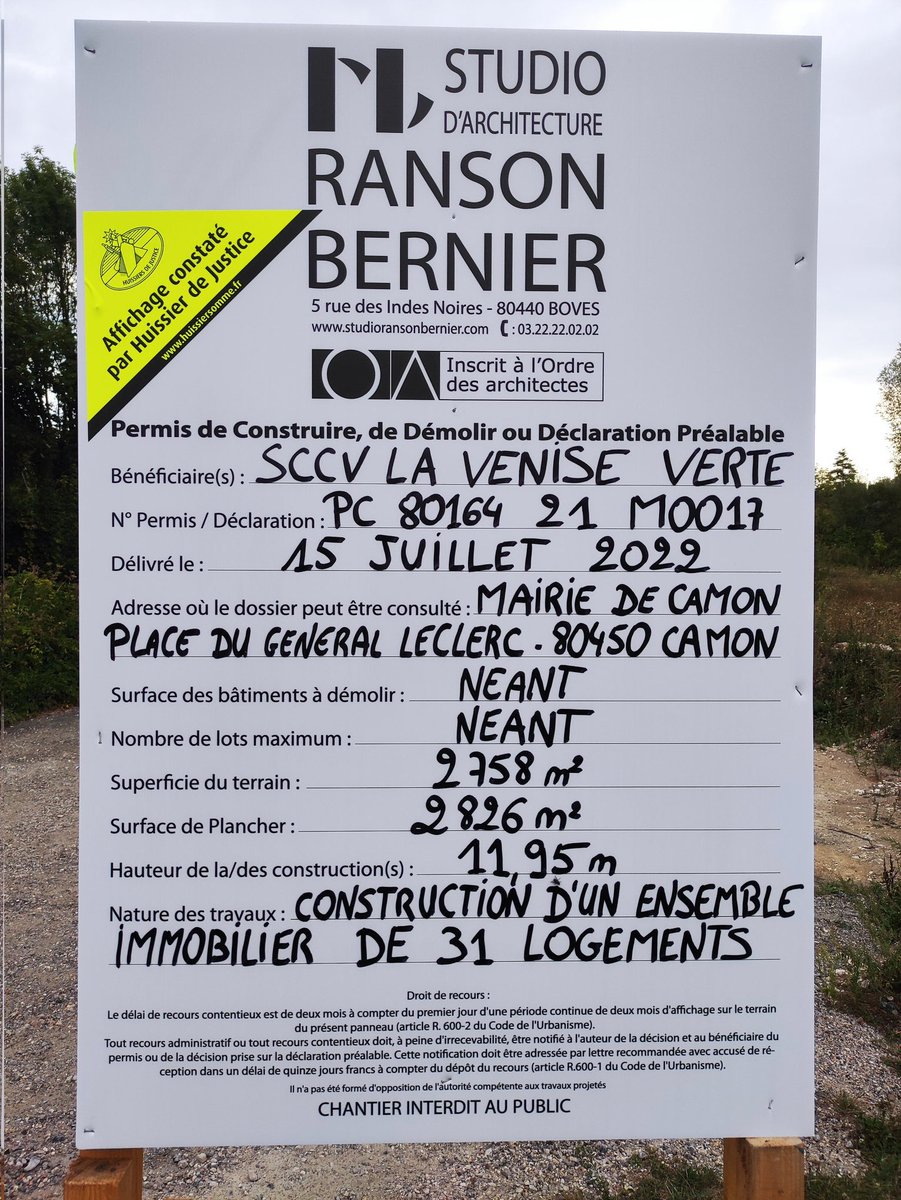 STUDIO
D'ARCHITECTURE
RANSON
BERNIER
5 rue des Indes Noires - 80440 BOVES
www.studioransonbernier.com : 03.22.22.02.02
HUISSIERS DE JUSTICE
Affichage constaté
par Huissier de Justice
www.huissiersomme.fr
OA Inscrit à l'Ordre
des architectes
Permis de Construire, de Démolir ou Déclaration Préalable
Bénéficiaire(s) : SCCV LA VENISE VERTE
N° Permis / Déclaration : PC 80164 21 M0017
Délivré le : 15 JUILLET 2022
Adresse où le dossier peut être consulté : MAIRIE DE CAMON
PLACE DU GENERAL LECLERC - 80450 CAMON
Surface des bâtiments à démolir : NEANT
Nombre de lots maximum : NEANT
Superficie du terrain : 2758 m²
Surface de Plancher : 2826 m²
Hauteur de la/des construction(s) : 11,95 m
Nature des travaux : CONSTRUCTION D'UN ENSEMBLE
IMMOBILIER DE 31 LOGEMENTS
Droit de recours :
Le délai de recours contentieux est de deux mois à compter du premier jour d'une période continue de deux mois d'affichage sur le terrain
du présent panneau (article R. 600-2 du Code de l'Urbanisme).
Tout recours administratif ou tout recours contentieux doit, à peine d'irrecevabilité, être notifié à l'auteur de la décision et au bénéficiaire du
permis ou de la décision prise sur la déclaration préalable. Cette notification doit être adressée par lettre recommandée avec accusé de ré-
ception dans un délai de quinze jours francs à compter du dépôt du recours (article R.600-1 du Code de l'Urbanisme).
Il n'a pas été formé d'opposition de l'autorité compétente aux travaux projetés
CHANTIER INTERDIT AU PUBLIC